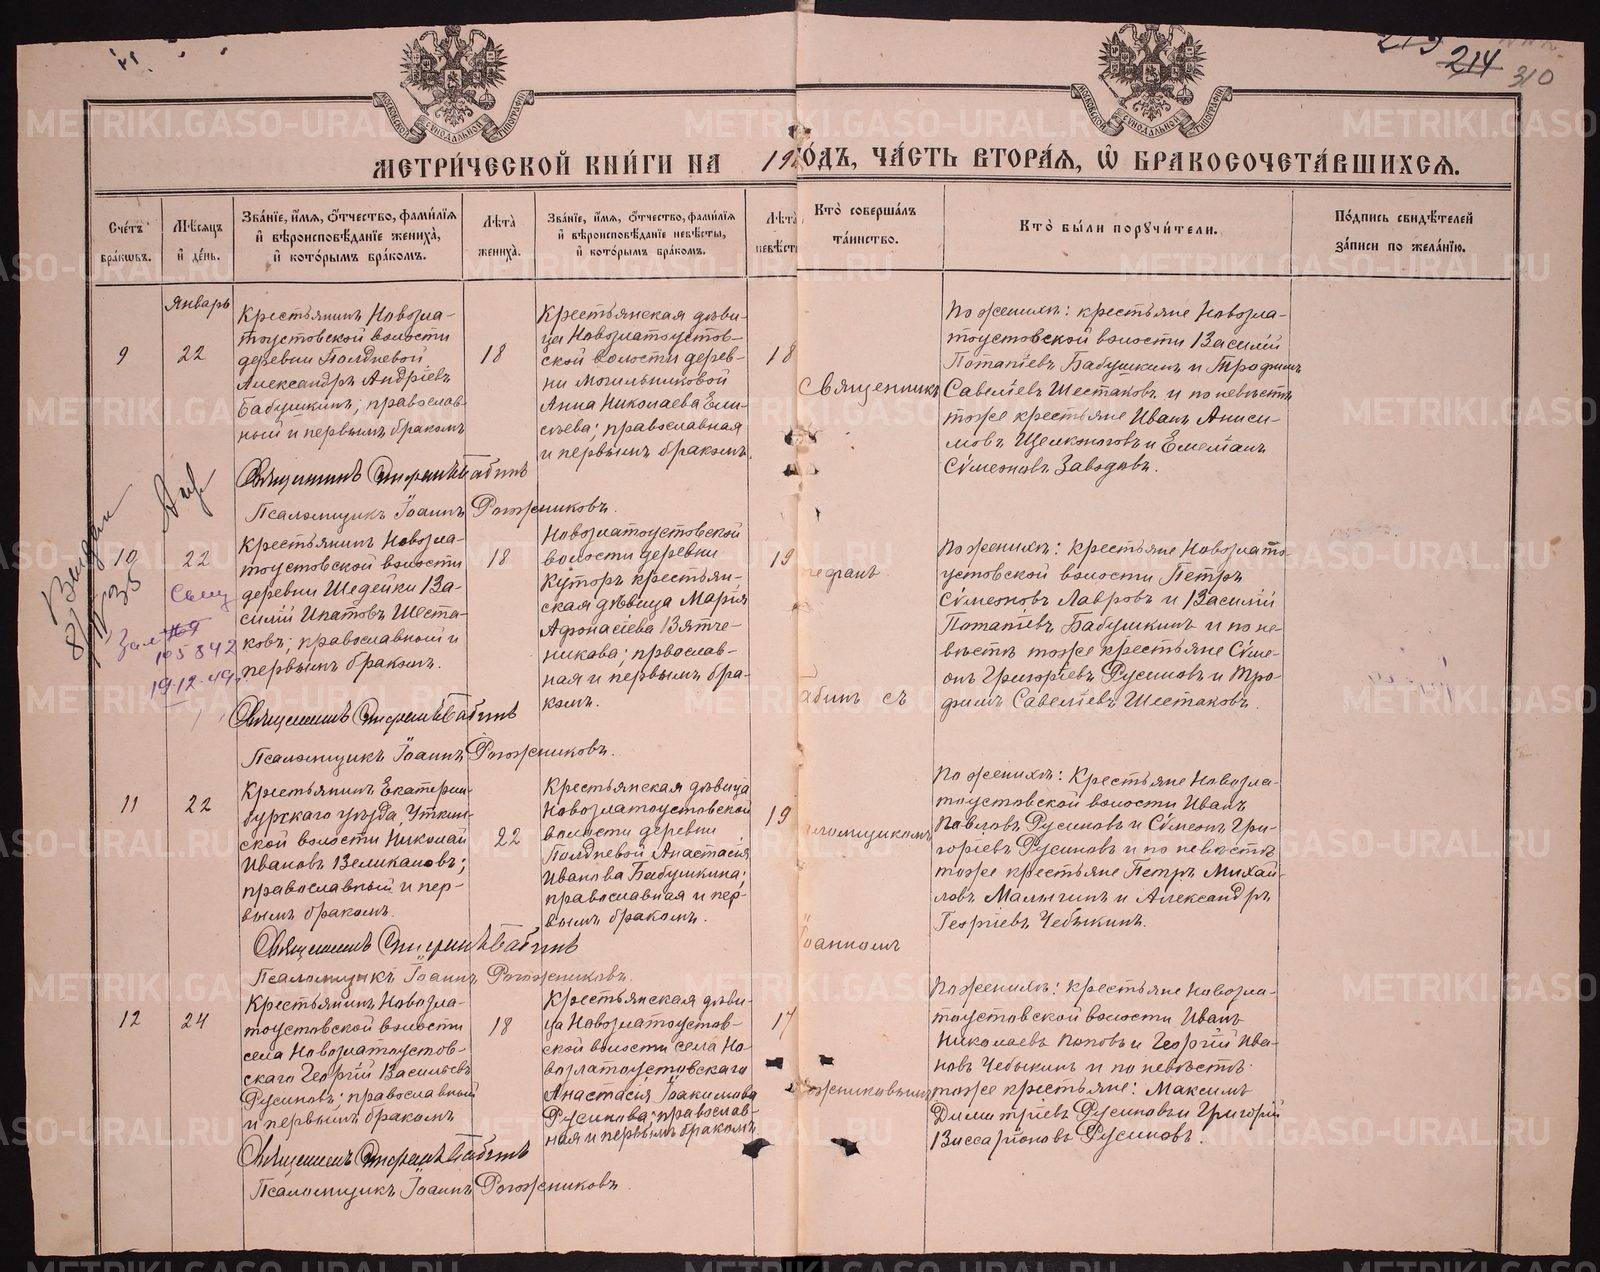 214
310
МОСКОВСКОЙ СѴНОДАЛЬНОЙ ТИПОГРАФІИ
МОСКОВСКОЙ СѴНОДАЛЬНОЙ ТИПОГРАФІИ
МЕТРИ́ЧЕСКОЙ КНИ́ГИ НА 19 ГОДЪ, ЧА́СТЬ ВТОРА́Я, Ѿ БРАКОСОЧЕТА́ВШИХСЯ.
Сче́тъ бра́ковъ.
Мѣ́сяцъ и де́нь.
Зва́нїе, и́мя, ѻ́тчество, фами́лїя и вѣроисповѣ́данїе жениха̀, и кото́рымъ бра́комъ.
Лѣта̀ жениха̀.
Зва́нїе, и́мя, ѻ́тчество, фами́лїя и вѣроисповѣ́данїе невѣ́сты, и кото́рымъ бра́комъ.
Лѣта̀ невѣст
Кто̀ соверша́лъ та́инство.
Кто̀ бы́ли порꙋчи́тели.
По́дпись свидѣ́телей за́писи по жела́нїю.
Январь
9
22
Крестьянинъ Новозла-
тоустовской волости
деревни Полдневой
Александръ Андріевъ
Бабушкинъ; православ-
ный и первымъ бракомъ
18
Крестьянская дѣви-
ца Новозлатоустов-
ской волости дерев-
ни Могильниковой
Анна Николаева Ели-
сѣева; православная
и первымъ бракомъ.
18
Священник
По женихѣ: крестьяне Новозла-
тоустовской волости Василій
Потапіевъ Бабушкинъ и Трофимъ
Савеліевъ Шестаковъ и по невѣстѣ
тоже крестьяне Иванъ Аниси-
мовъ Щелконоговъ и Емеліанъ
Сѵмеоновъ Заводовъ.
Священникъ Стефанъ Бабинъ
Псаломщикъ Іоаннъ Рогожниковъ.
10
22
Крестьянинъ Новозла-
тоустовской волости
деревни Шедейки Ва-
силій Ипатовъ Шеста-
ковъ; православный и
первымъ бракомъ.
18
Новозлатоустовской
волости деревни
Куторъ крестьян-
ская дѣвица Марія
Афонасіева Вятче-
никова; првослав-
ная и первымъ бра-
комъ.
19
тефанъ
абинъ съ
По женихѣ: крестьяне Новозлато-
устовской волости Петръ
Сѵмеоновъ Лавровъ и Василій
Потапіевъ Бабушкинъ и по не-
вѣстѣ тоже крестьяне Сѵме-
онъ Григоріевъ Русиновъ и Тро-
фимъ Савеліевъ Шестаковъ.
Выдан
105842
19-12-49
Священникъ Стефанъ Бабинъ
Псаломщикъ Іоаннъ Рогожниковъ.
11
22
Крестьянинъ Екатерин-
бургскаго уѣзда, Уткин-
ской волости Николай
Ивановъ Великановъ;
православный и пер-
вымъ бракомъ.
22
Крестьянская дѣвица
Новозлатоустовской
волости деревни
Полдневой Анастасія
Иванова Бабушкина;
православная и пер-
вымъ бракомъ.
19
аломщикомъ
Іоанномъ
По женихѣ: Крестьяне Новозла-
тоустовской волости Иванъ
Павловъ Русиновъ и Сѵмеонъ Гри-
горіевъ Русиновъ и по невѣстѣ
тоже крестьяне Петръ Михай-
ловъ Малыгинъ и Александръ
Георгіевъ Чебыкинъ.
Священникъ Стефанъ Бабинъ
Псаломщикъ Іоаннъ Рогожниковъ.
12
24
Крестьянинъ Новозла-
тоустовской волости
села Новозлатоустов-
скаго Георгій Васильевъ
Русиновъ; православный
и первымъ бракомъ
18
Крестьянская дѣви-
ца Новозлатоустов-
ской волости села Но-
возлатоустовскаго
Анастасія Іоакимова
Русинова; православ-
ная и первымъ бракомъ
17
ожниковымъ
По женихѣ: крестьяне Новозла-
тоустовской волости Иванъ
Николаевъ Поповъ и Георгій Ива-
новъ Чебыкинъ и по невѣстѣ
тоже крестьяне: Максимъ
Димитріевъ Русиновъ и Григорій
Виссаріоновъ Русиновъ.
Священникъ Стефанъ Бабинъ
Псаломщикъ Іоаннъ Рогожниковъ.
METRIKI.GASO-URAL.RU